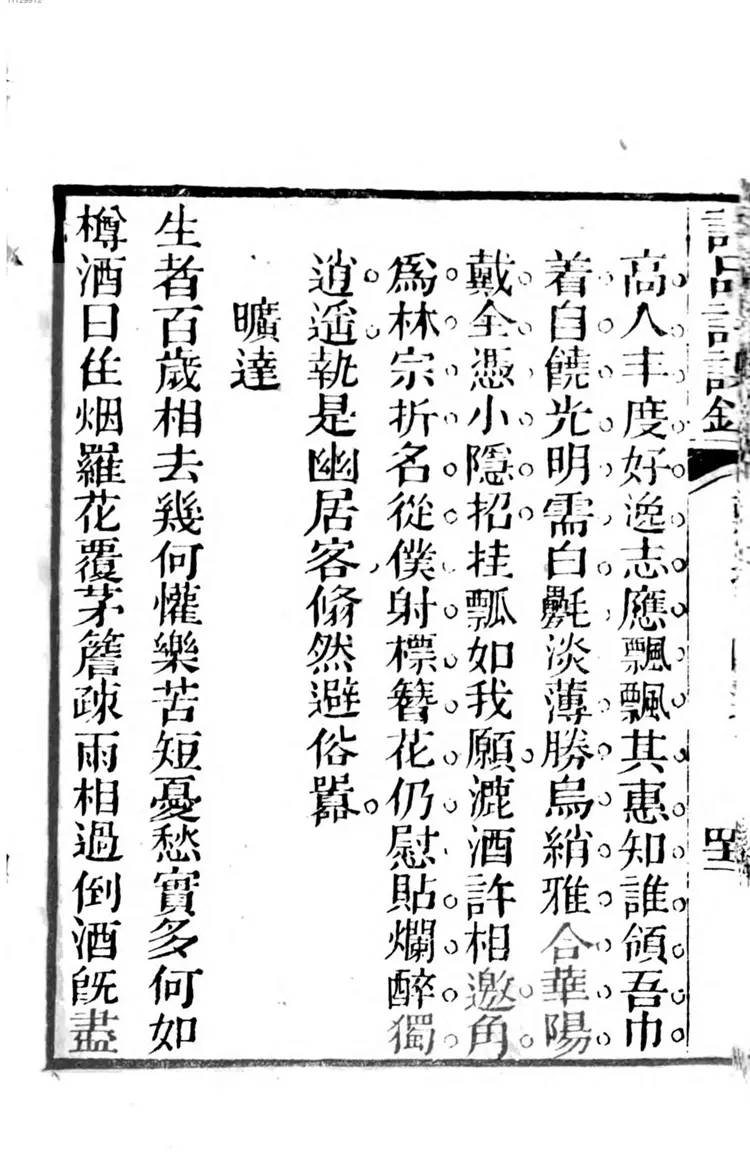 高人丰度好逸志應飄飄其惠知誰頒吾巾
着自饒光明需白㲲淡薄勝烏綃雅合華陽
戴全憑小隱招挂瓢如我願漉酒許相邀角
爲林宗折名從僕射標簪花仍慰貼爛醉獨
逍遥孰是幽居客翛然避俗囂
曠達
生者百歲相去幾何懽樂苦短憂愁實多何如
樽酒日往烟羅花覆茅簷疎雨相過倒酒旣盡